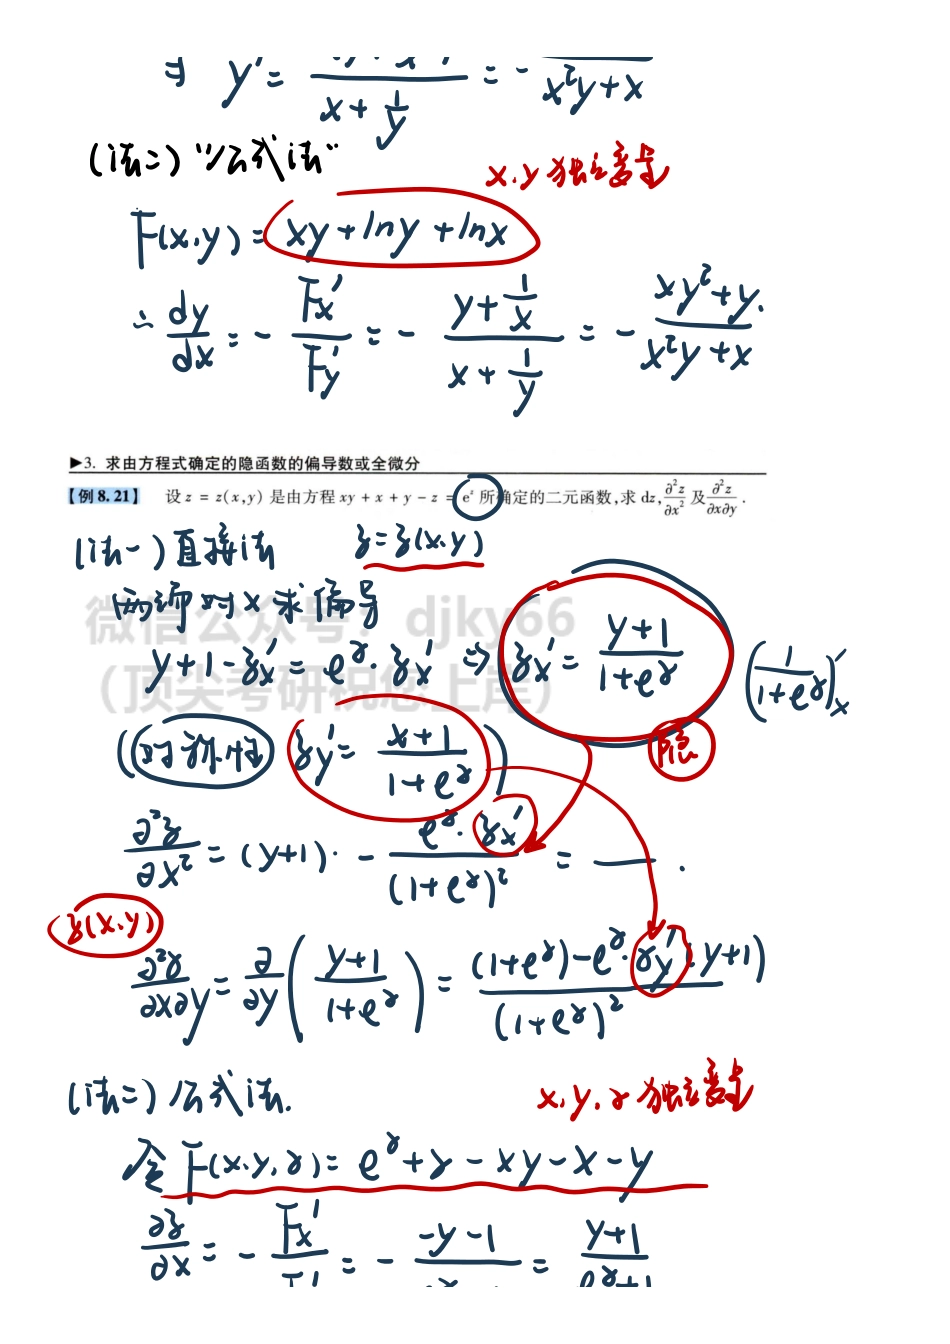 ∃ y' = / (x + 1/y) = - / (x²y + x)
(法二) “公式法”
x.y 独立变量
F(x.y) = xy + lny + lnx
∴ dy/dx = - Fx'/Fy' = - (y + 1/x)/(x + 1/y) = - (xy² + y)/(x²y + x).
▶3. 求由方程式确定的隐函数的偏导数或全微分
【例 8.21】 设 z = z(x,y) 是由方程 xy + x + y - z = e^z 所确定的二元函数,求 dz, ∂²z/∂x² 及 ∂²z/∂x∂y.
(法一) 直接法 z = z(x.y)
两端对 x 求偏导
微信公众号: djky66
y + 1 - zx' = e^z · zx' ⇒ zx' = (y+1)/(1+e^z) (1/(1+e^z))'x
(顶尖考研祝您上岸)
((对称性) zy' = (x+1)/(1+e^z)) 隐
∂²z/∂x² = (y+1) · - (e^z · zx')/(1+e^z)² = — .
z(x.y)
∂²z/∂x∂y = ∂/∂y ((y+1)/(1+e^z)) = ((1+e^z) - e^z · zy' (y+1))/(1+e^z)²
(法二) 公式法. x.y.z 独立变量
令 F(x.y.z) = e^z + z - xy - x - y
∂z/∂x = - Fx'/ = - (-y-1)/ = (y+1)/(e^z+1)